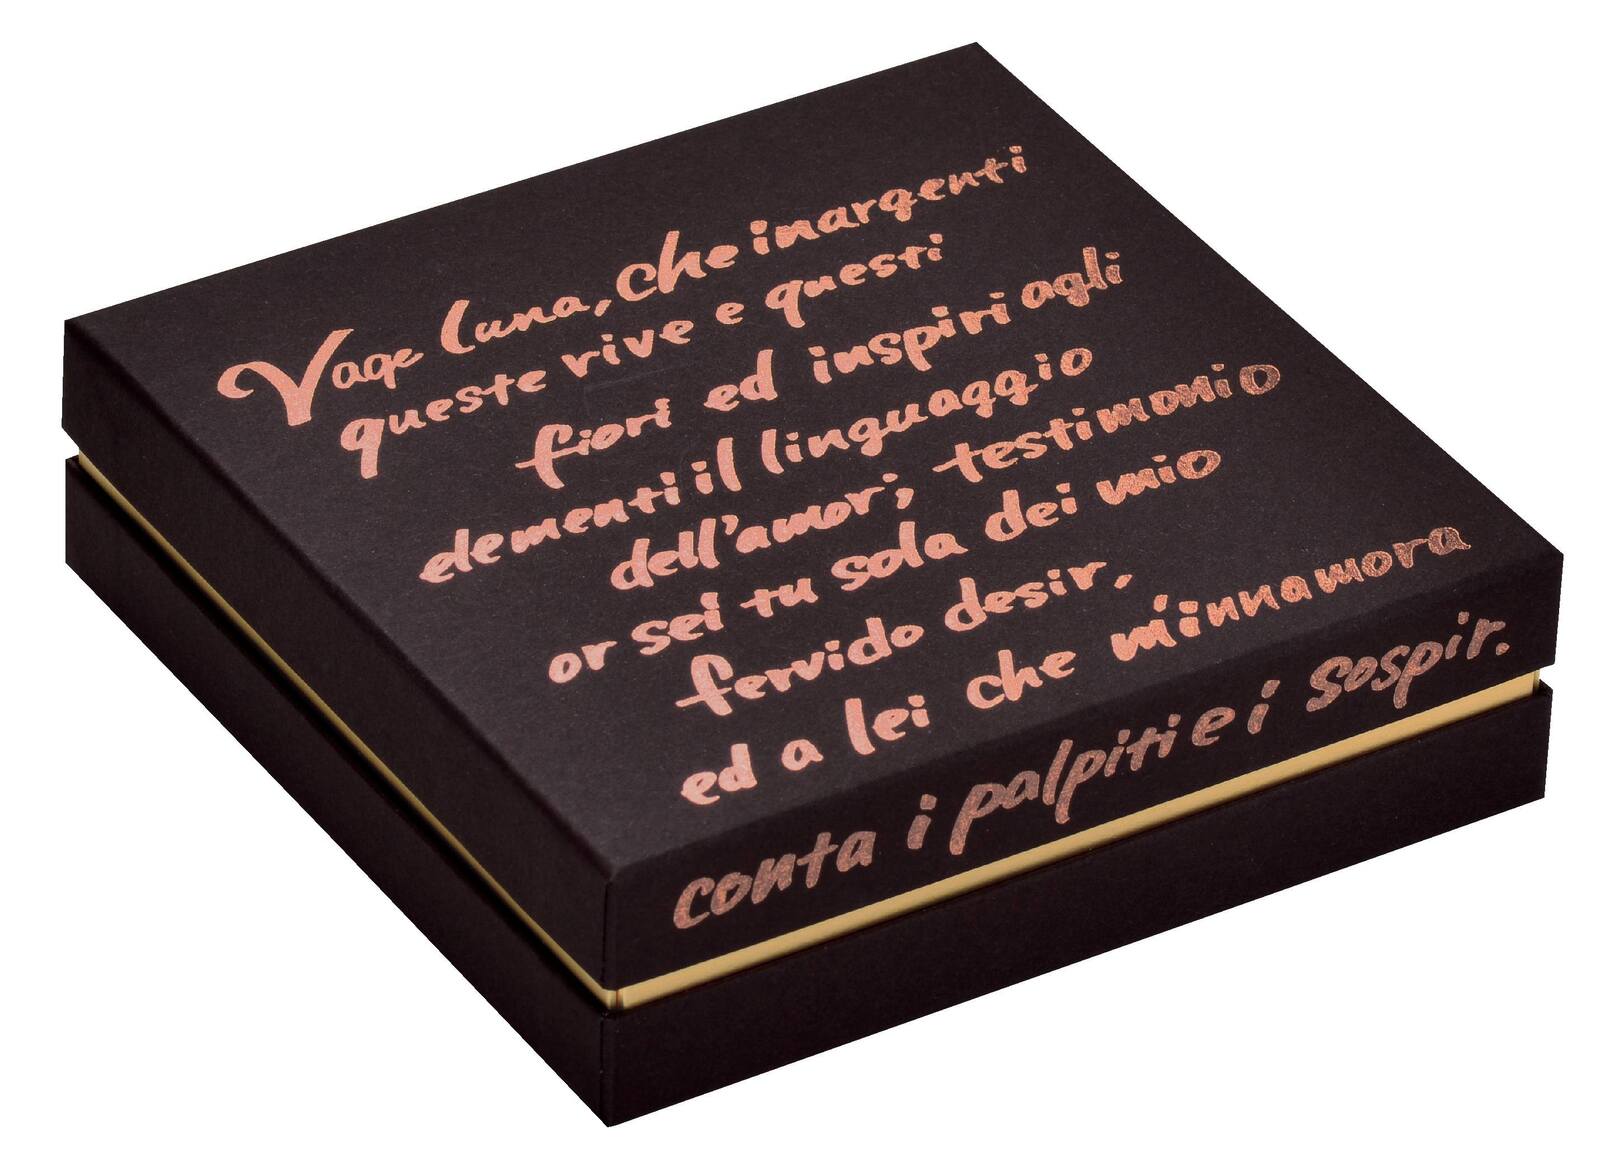 Vage luna, che inargenti
queste rive e questi
fiori ed inspiri agli
elementi il linguaggio
dell'amor; testimonio
or sei tu sola dei mio
fervido desir,
ed a lei che m'innamora
conta i palpiti e i sospir.